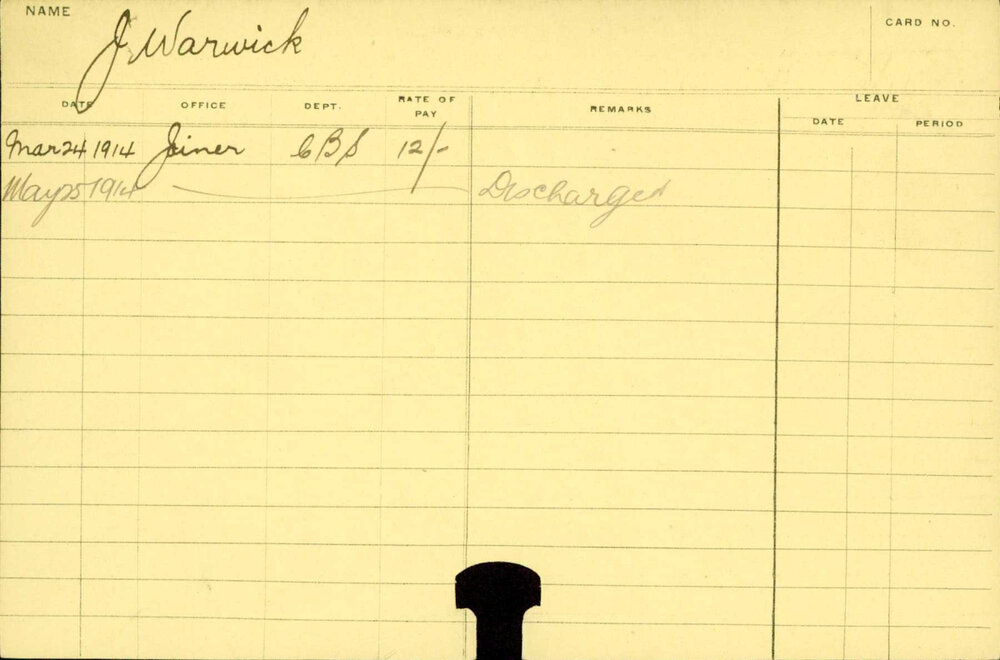 NAME J Warwick CARD NO.
DATE OFFICE DEPT. RATE OF PAY REMARKS LEAVE
DATE PERIOD
Mar 24 1914 Joiner CBS 12/-
May 25 1914 Discharged